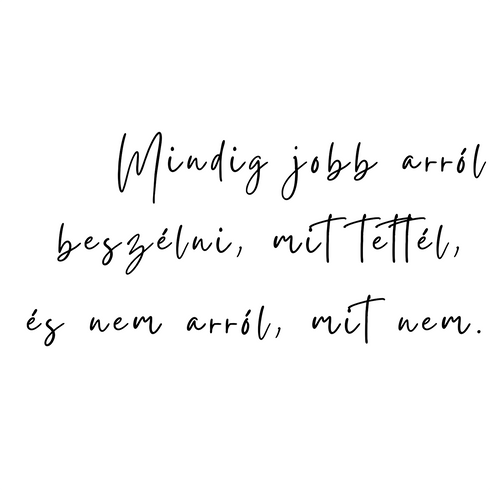 Mindig jobb arról
beszélni, mit tettél,
és nem arról, mit nem.